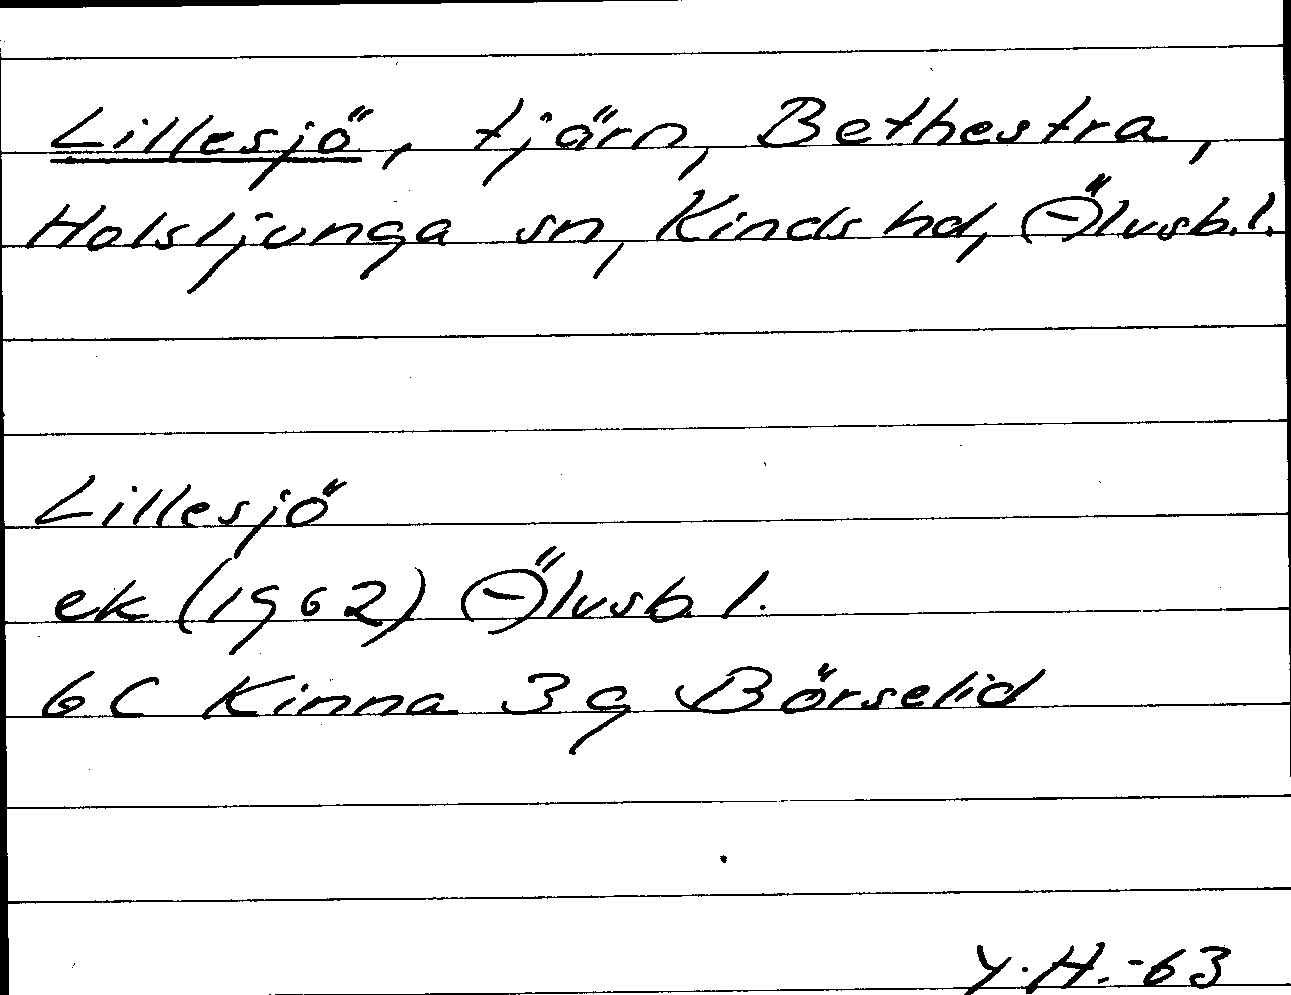 Lillesjö, tjärn, Bethestra,
Holsljunga sn, Kinds hd, Älvsb.l.
Lillesjö
ek (1962) Älvsb.l.
6C Kinna 3g Börselid
Y.H.-63